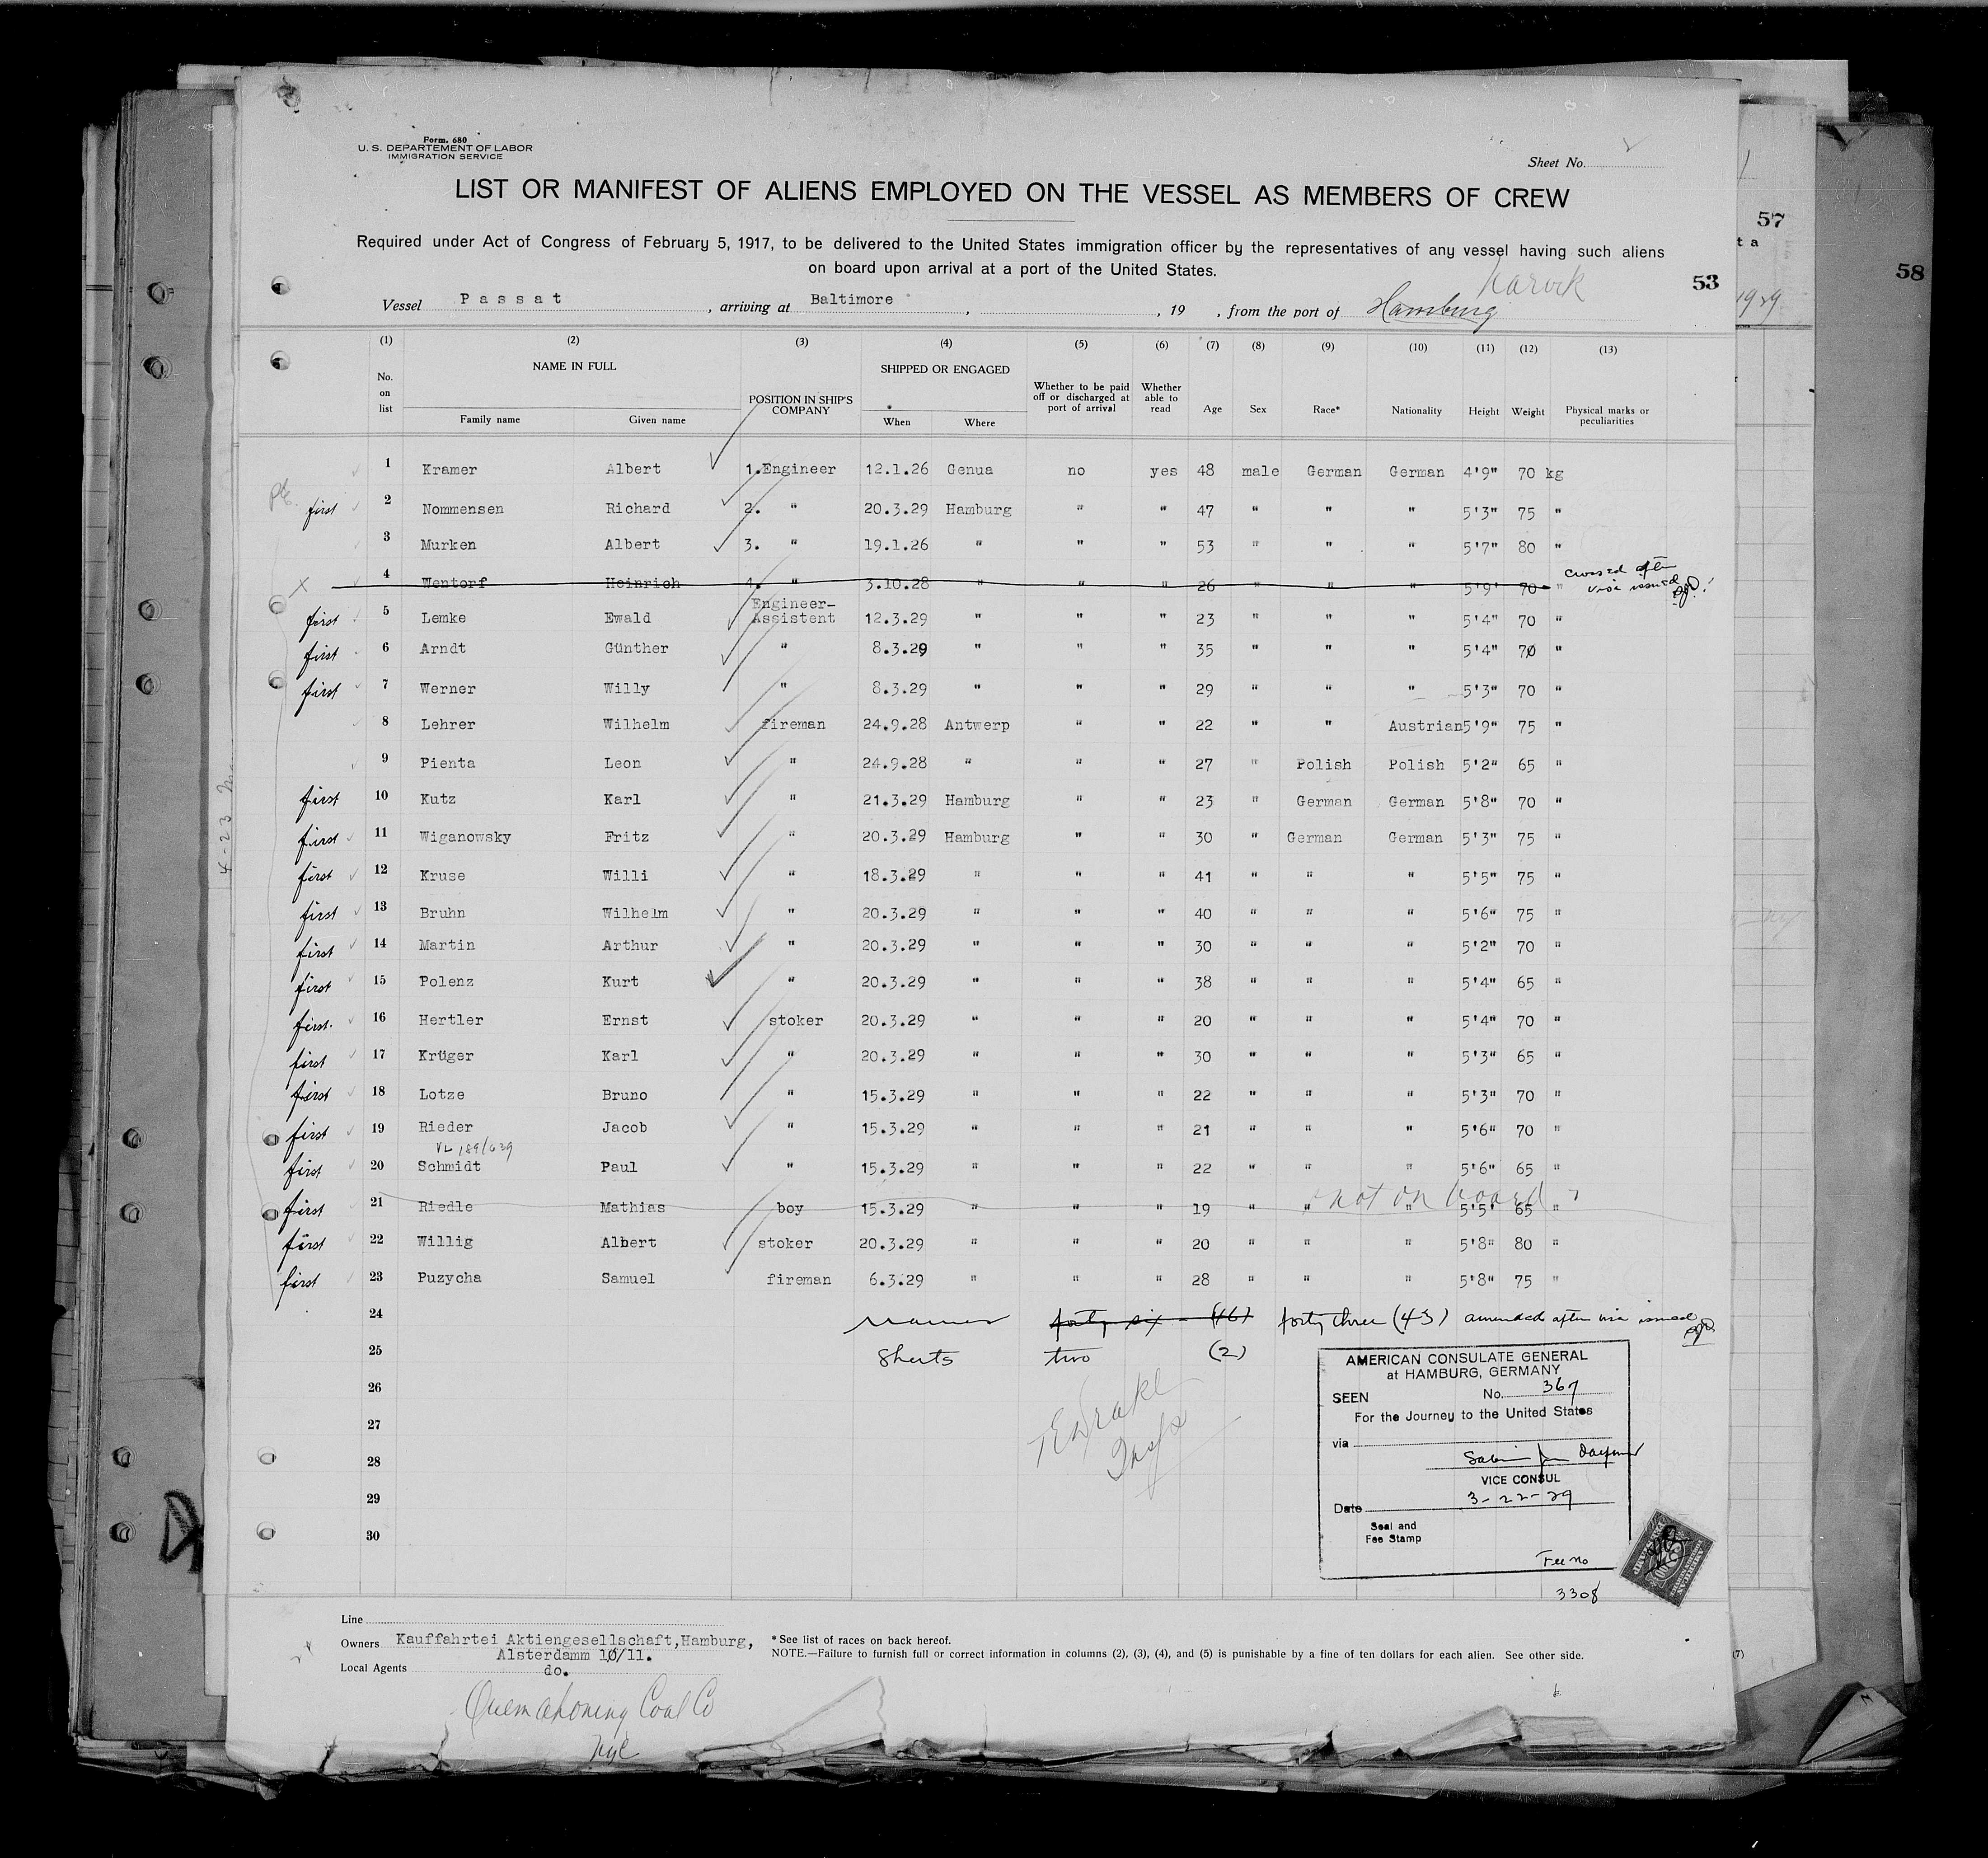 Form. 680
U. S. DEPARTEMENT OF LABOR
IMMIGRATION SERVICE
Sheet No.
LIST OR MANIFEST OF ALIENS EMPLOYED ON THE VESSEL AS MEMBERS OF CREW
Required under Act of Congress of February 5, 1917, to be delivered to the United States immigration officer by the representatives of any vessel having such aliens
on board upon arrival at a port of the United States.
53
57
t a
58
1929
Narvik
Vessel Passat, arriving at Baltimore, , 19 , from the port of Hamburg
(1) (2) (3) (4) (5) (6) (7) (8) (9) (10) (11) (12) (13)
No. on list NAME IN FULL Family name Given name POSITION IN SHIP'S COMPANY SHIPPED OR ENGAGED When Where Whether to be paid off or discharged at port of arrival Whether able to read Age Sex Race* Nationality Height Weight Physical marks or peculiarities
1 Kramer Albert 1.Engineer 12.1.26 Genua no yes 48 male German German 4'9" 70 kg
first 2 Nommensen Richard 2. " 20.3.29 Hamburg " " 47 " " " 5'3" 75 "
3 Murken Albert 3. " 19.1.26 " " " 53 " " " 5'7" 80 "
x 4 Wentorf Heinrich 4. " 3.10.28 " " " 26 " " " 5'9' 70 " crossed after visa issued
first 5 Lemke Ewald Engineer-Assistent 12.3.29 " " " 23 " " " 5'4" 70 "
first 6 Arndt Günther " 8.3.29 " " " 35 " " " 5'4" 70 "
first 7 Werner Willy " 8.3.29 " " " 29 " " " 5'3" 70 "
8 Lehrer Wilhelm fireman 24.9.28 Antwerp " " 22 " " Austrian 5'9" 75 "
9 Pienta Leon " 24.9.28 " " " 27 " Polish Polish 5'2" 65 "
first 10 Kutz Karl " 21.3.29 Hamburg " " 23 " German German 5'8" 70 "
first 11 Wiganowsky Fritz " 20.3.29 Hamburg " " 30 " German German 5'3" 75 "
first 12 Kruse Willi " 18.3.29 " " " 41 " " " 5'5" 75 "
first 13 Bruhn Wilhelm " 20.3.29 " " " 40 " " " 5'6" 75 "
first 14 Martin Arthur " 20.3.29 " " " 30 " " " 5'2" 70 "
first 15 Polenz Kurt " 20.3.29 " " " 38 " " " 5'4" 65 "
first 16 Hertler Ernst stoker 20.3.29 " " " 20 " " " 5'4" 70 "
first 17 Krüger Karl " 20.3.29 " " " 30 " " " 5'3" 65 "
first 18 Lotze Bruno " 15.3.29 " " " 22 " " " 5'3" 70 "
first 19 Rieder Jacob " 15.3.29 " " " 21 " " " 5'6" 70 "
VL 189/639
first 20 Schmidt Paul " 15.3.29 " " " 22 " " " 5'6" 65 "
first 21 Riedle Mathias boy 15.3.29 " " " 19 " " " 5'5' 65 " not on board
first 22 Willig Albert stoker 20.3.29 " " " 20 " " " 5'8" 80 "
first 23 Puzycha Samuel fireman 6.3.29 " " " 28 " " " 5'8" 75 "
4-23
24 Names forty six - (46) forty three (43) amended after visa issued
25 Sheets two (2)
26
27
28
29
30
AMERICAN CONSULATE GENERAL
at HAMBURG, GERMANY
SEEN No. 367
For the Journey to the United States
via
VICE CONSUL
Date 3-22-29
Seal and
Fee Stamp
Fee no
3308
Line
Owners Kauffahrtei Aktiengesellschaft, Hamburg,
Alsterdamm 10/11.
Local Agents do.
*See list of races on back hereof.
NOTE.—Failure to furnish full or correct information in columns (2), (3), (4), and (5) is punishable by a fine of ten dollars for each alien. See other side.
(7)
Quemahoning Coal Co
NYC